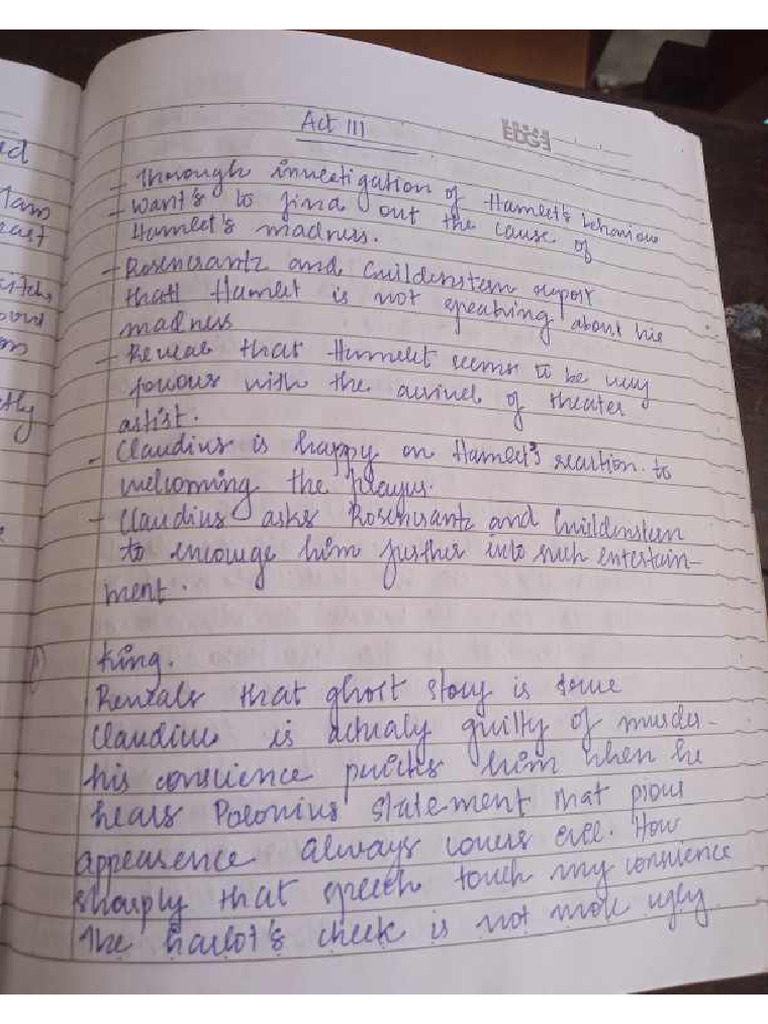 ed
Act III
- Thorough investigation of Hamlet's behaviour
- Want's to find out the cause of
Hamlet's madness.
east
- Rosencrantz and Guildenstern report
thatt Hamlet is not speaking about his
madness
- Reveal that Hamlet seems to be very
with the of theater
artist.
- Claudius is happy on Hamlet's reaction to
welcoming the players.
- Claudius asks Rosencrantz and Guildenstern
to encouge him further into such entertain-
ment.
King.
Reveals that ghost story is true
Claudius is actualy guilty of murder -
his conscience pricks him when he
hears Polonius statement that pious
appearence always covers evil. How
sharply that speech touch my consience
The harlot's cheek is not more ugly